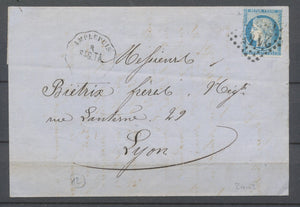 AMPLEPUIS
Messieurs
Biétrix frères, Nég.ts
rue Lanterne 29
Lyon
12